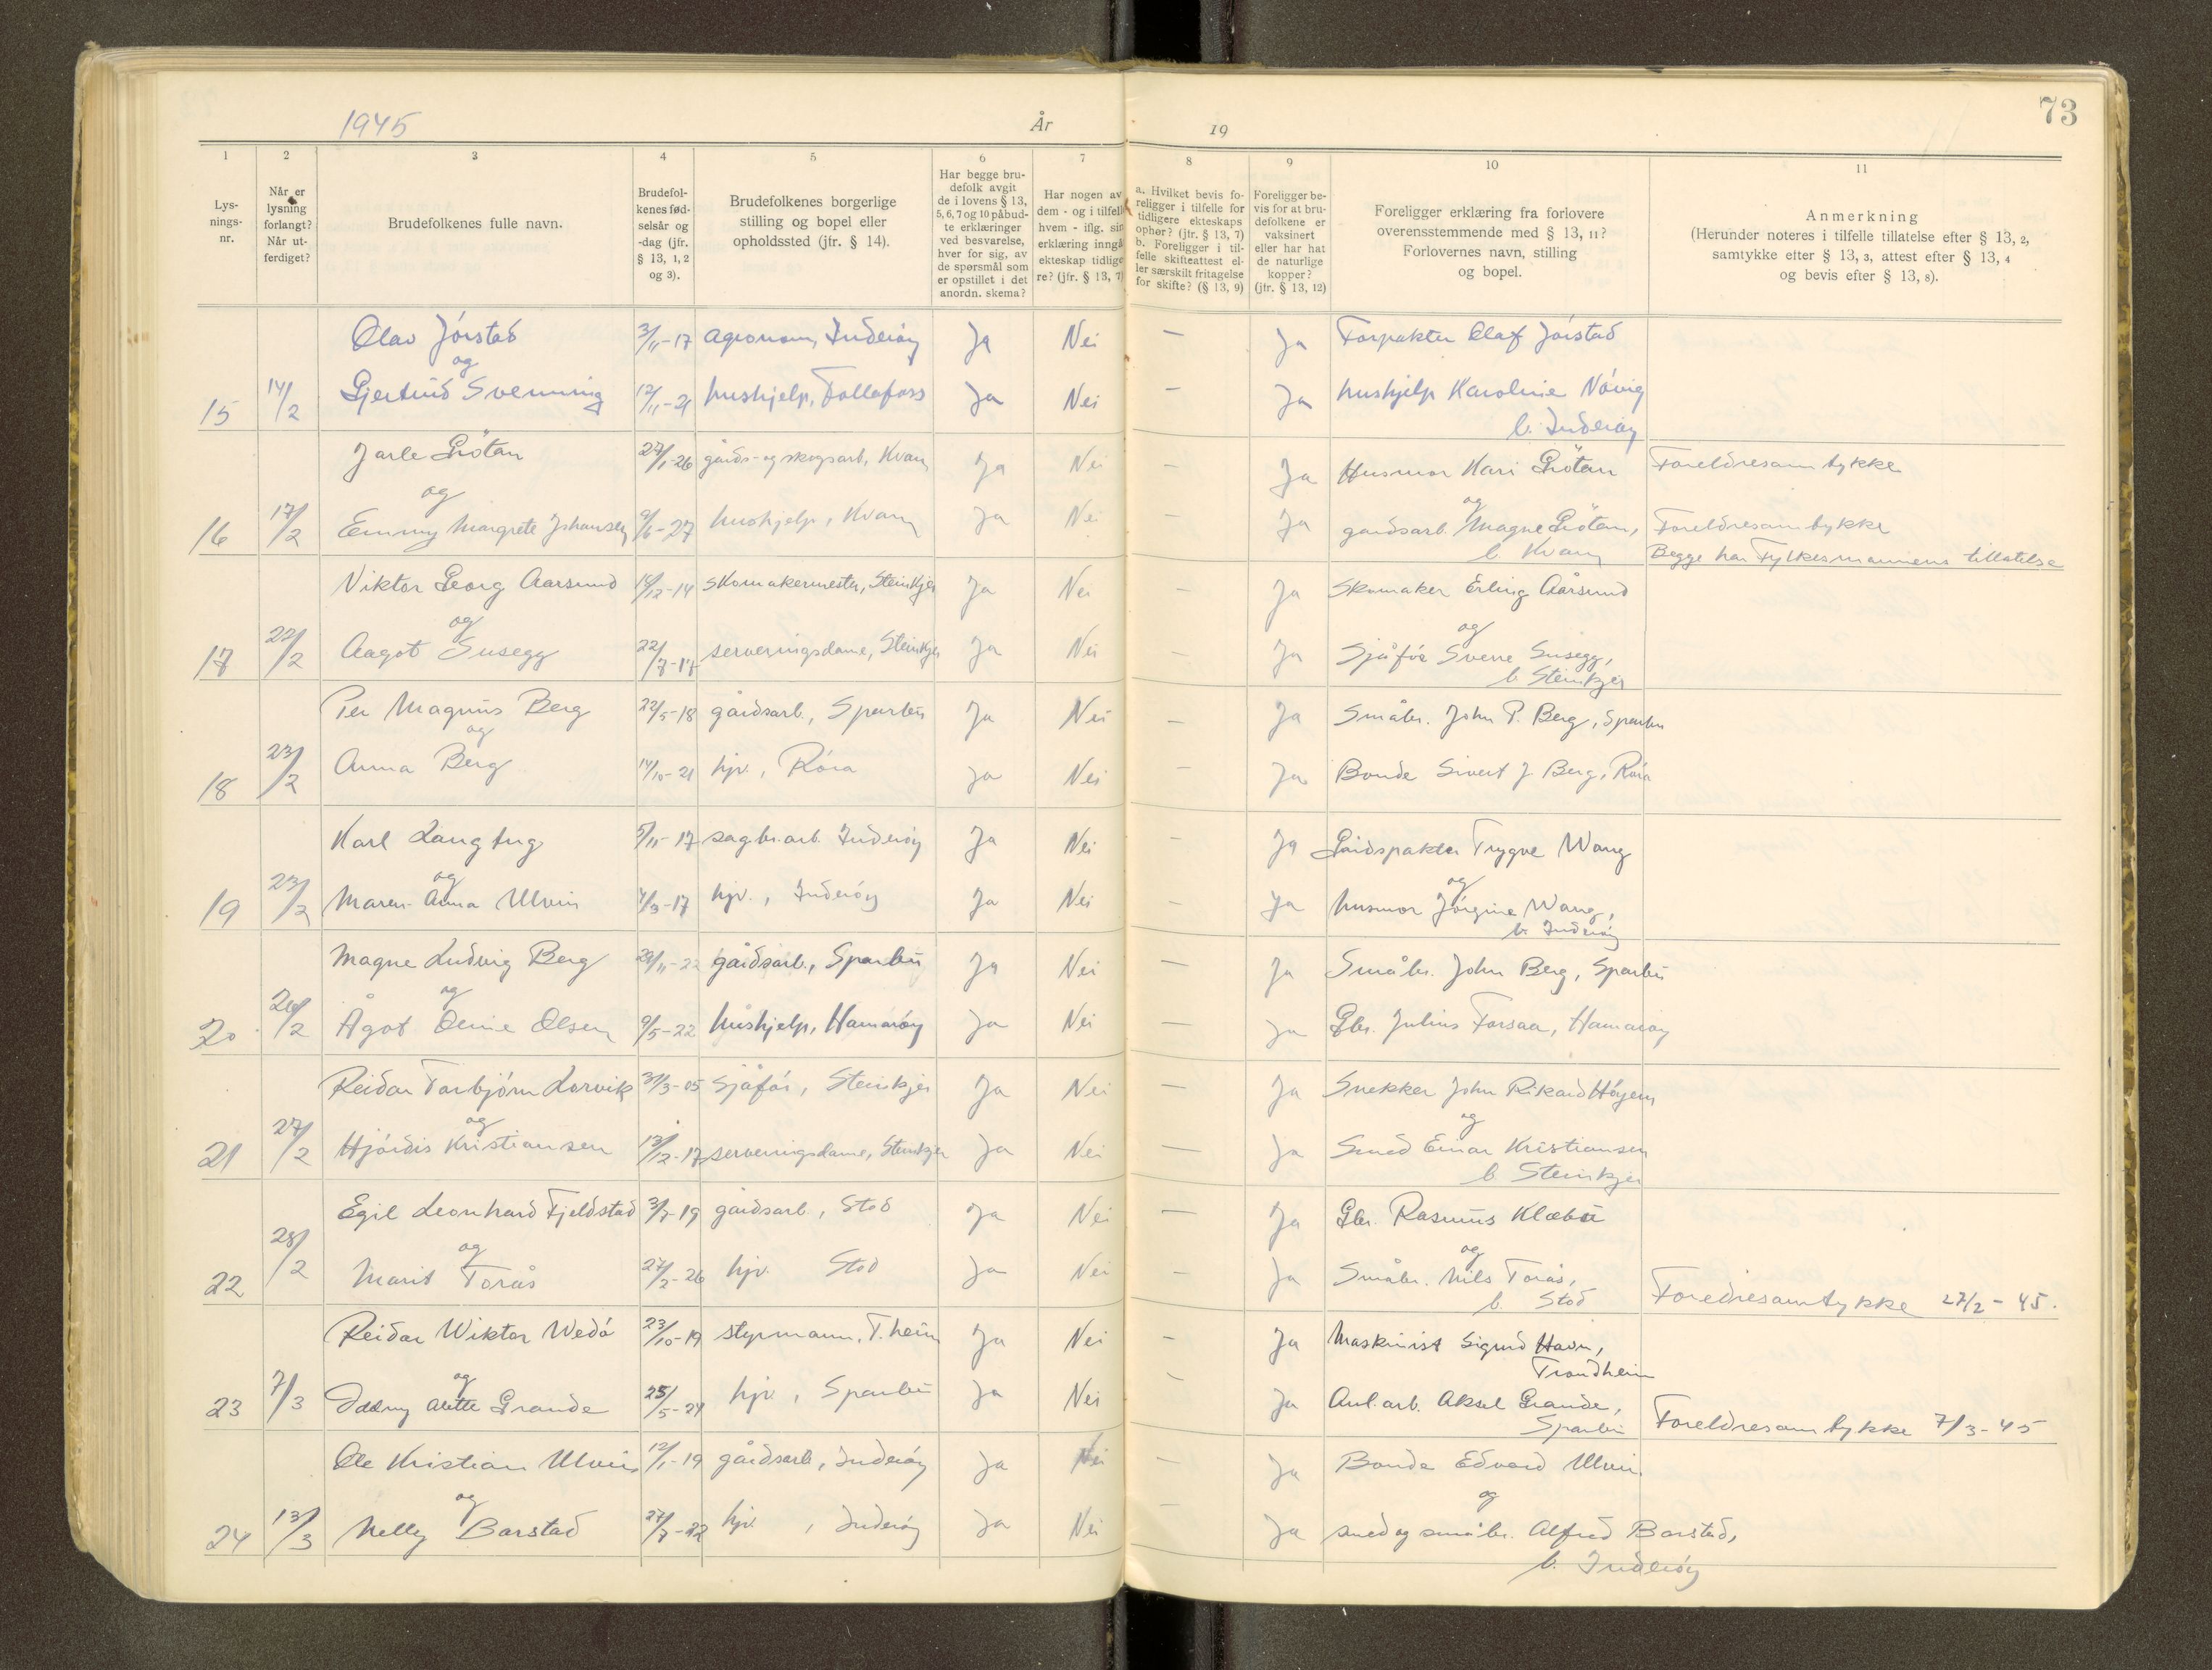 73
1945 År 19
1 2 3 4 5 6 7 8 9 10 11
Lys-
nings-
nr.
Når er
lysning
forlangt?
Når ut-
ferdiget?
Brudefolkenes fulle navn.
Brudefol-
kenes fød-
selsår og
-dag (jfr.
§ 13, 1, 2
og 3).
Brudefolkenes borgerlige
stilling og bopel eller
opholdssted (jfr. § 14).
Har begge bru-
defolk avgit
de i lovens § 13,
5, 6, 7 og 10 påbud-
te erklæringer
ved besvarelse,
hver for sig, av
de spørsmål som
er opstillet i det
anordn. skema?
Har nogen av
dem - og i tilfell
hvem - iflg. sin
erklæring inngå
ekteskap tidlige
re? (jfr. § 13, 7)
a. Hvilket bevis fo-
religger i tilfelle for
tidligere ekteskaps
ophør? (jfr. § 13, 7)
b. Foreligger i til-
felle skifteattest el-
ler særskilt fritagelse
for skifte? (§ 13, 9)
Foreligger be-
vis for at bru-
defolkene er
vaksinert
eller har hat
de naturlige
kopper?
(jfr. § 13, 12)
Foreligger erklæring fra forlovere
overensstemmende med § 13, 11?
Forlovernes navn, stilling
og bopel.
Anmerkning
(Herunder noteres i tilfelle tillatelse efter § 13, 2,
samtykke efter § 13, 3, attest efter § 13, 4
og bevis efter § 13, 8).
Olav Jörstad 3/11-17 agronom, Inderöy Ja Nei — Ja Forpakter Olaf Jörstad
og
15 14/2 Gjertrud Svenning 12/11-21 hushjelp, Follafoss Ja Nei — Ja hushjelp Karoline Növig
b. Inderöy
Jarle Grötan 27/1-26 gårds- og skogsarb, Kvam Ja Nei - Ja Husmor Kari Grötan Foreldresamtykke
og og
16 17/2 Emmy Margrete Johansen 9/6-27 hushjelp, Kvam Ja Nei - Ja gårdsarb. Magne Grötan, Foreldresamtykke
b. Kvam Begge har Fylkesmannens tillatelse
Viktor Georg Aarsund 14/12-14 skomakermester, Steinkjer Ja Nei - Ja Skomaker Erling Aarsund
og og
17 22/2 Aagot Susegg serveringsdame, Steinkjer Ja Nei - Ja Sjåför Sverre Susegg,
b. Steinkjer
Per Magnus Berg 22/5-18 gårdsarb., Sparbu Ja Nei - Ja Småbr. John P. Berg, Sparbu
og
18 23/2 Anna Berg 14/10-21 hjv., Röra Ja Nei - Ja Bonde Sivert J Berg, Röra
Karl Langhug 5/11-17 sagbr.arb. Inderöy Ja Nei - Ja Gårdspakter Trygve Wang
og og
19 23/2 Maren Anna Ulvin 4/3-17 hjv., Inderöy Ja Nei - Ja husmor Jörgine Wang,
b. Inderöy
Magne Ludvig Berg gårdsarb., Sparbu Ja Nei - Ja Småbr. John Berg, Sparbu
og
20 26/2 Ågot Oline Olsen 9/5-22 hushjelp, Hamaröy Ja Nei - Ja Gbr. Julius Forsaa, Hamaröy
Reidar Torbjörn Lorvik 31/3-05 Sjåför, Steinkjer Ja Nei — Ja Snekker John Rikard Höyem
og og
21 27/2 Hjördis Kristiansen 13/12-17 serveringsdame, Steinkjer Ja Nei — Ja Smed Einar Kristiansen
b. Steinkjer
Egil Leonhard Fjeldstad 3/7-19 gårdsarb., Stod Ja Nei — Ja Gbr. Rasmus Klæbu
og og
22 28/2 Marit Torås 27/2-26 hjv. Stod Ja Nei - Ja Småbr. Nils Torås,
b. Stod Foredresamtykke 27/2-45.
Reidar Wiktor Wedö 23/10-19 styrmann, T.heim Ja Nei - Ja Maskinist Sigurd Havn,
og Trondheim
23 7/3 Oddny Alette Grande 25/5-24 hjv, Sparbu Ja Nei - Ja Anl.arb. Aksel Grande,
Sparbu Foreldresamtykke 7/3-45
Ole Kristian Ulvin 12/1-19 gårdsarb, Inderöy Ja Nei - Ja Bonde Edvard Ulvin
og og
24 13/3 Nelly Barstad 27/7-22 hjv, Inderöy Ja Nei - Ja smed og småbr. Alfred Barstad,
b. Inderöy